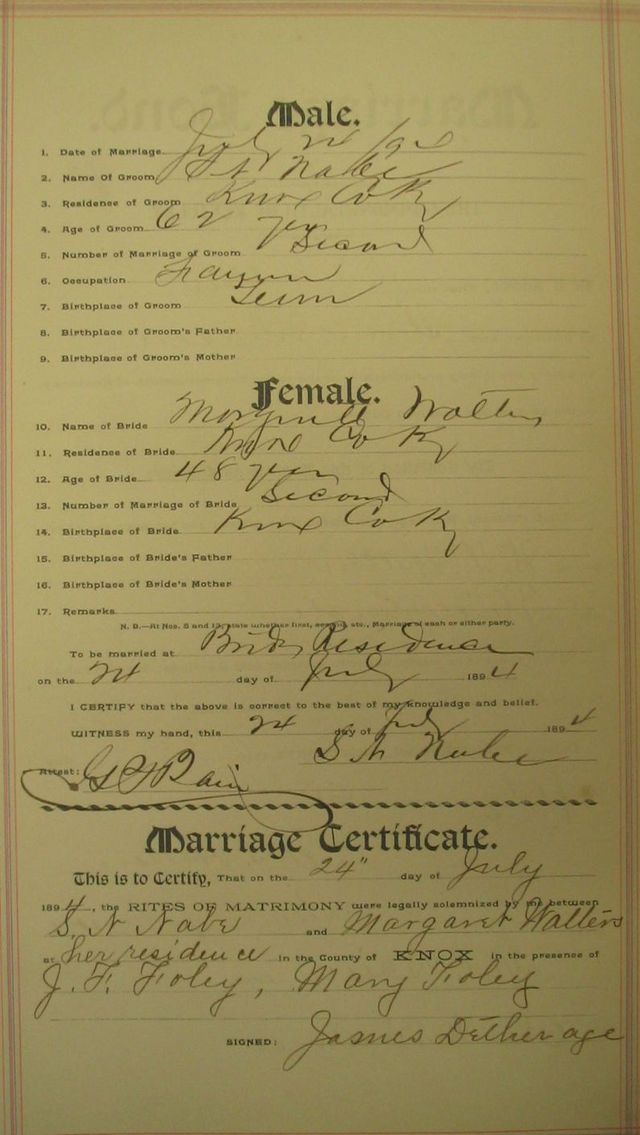 Male.
1. Date of Marriage July 24 /94
2. Name Of Groom S N Nabe
3. Residence of Groom Knox Co Ky
4. Age of Groom 62 yrs
5. Number of Marriage of Groom Second
6. Occupation Farmer
7. Birthplace of Groom Tenn
8. Birthplace of Groom's Father
9. Birthplace of Groom's Mother
Female.
10. Name of Bride Margrett Walters
11. Residence of Bride Knox Co Ky
12. Age of Bride 48 years
13. Number of Marriage of Bride Second
14. Birthplace of Bride Knox Co Ky
15. Birthplace of Bride's Father
16. Birthplace of Bride's Mother
17. Remarks
N. B.—At Nos. 5 and 13, state whether first, second, etc., Marriage of each or either party.
To be married at Brides Residence
on the 24 day of July 1894
I CERTIFY that the above is correct to the best of my knowledge and belief.
WITNESS my hand, this 24 day of July 1894
S N Nabe
Attest:
Marriage Certificate.
This is to Certify, That on the 24" day of July
1894, the RITES OF MATRIMONY were legally solemnized by me between
S. N Nabe and Margaret Walters
at her residence in the County of KNOX in the presence of
J. F. Foley, Mary Foley
SIGNED: James Detherage